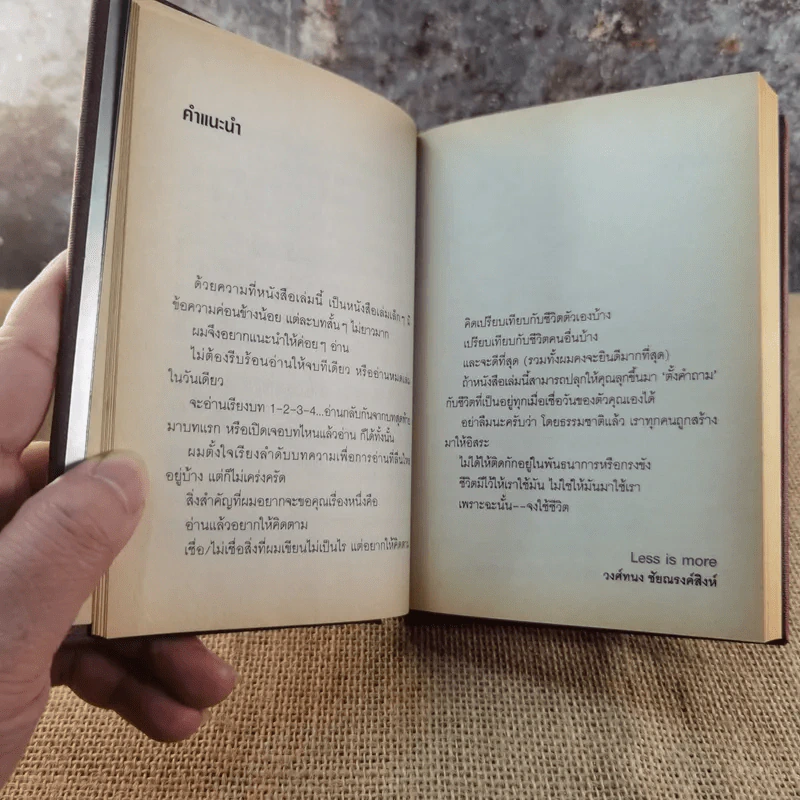 คำแนะนำ
ด้วยความที่หนังสือเล่มนี้ เป็นหนังสือเล่มเล็กๆ มี
ข้อความค่อนข้างน้อย แต่ละบทสั้นๆ ไม่ยาวมาก
ผมจึงอยากแนะนำให้ค่อยๆ อ่าน
ไม่ต้องรีบร้อนอ่านให้จบทีเดียว หรืออ่านหมดเล่ม
ในวันเดียว
จะอ่านเรียงบท 1-2-3-4...อ่านกลับกันจากบทสุดท้าย
มาบทแรก หรือเปิดเจอบทไหนแล้วอ่าน ก็ได้ทั้งนั้น
ผมตั้งใจเรียงลำดับบทความเพื่อการอ่านที่ลื่นไหล
อยู่บ้าง แต่ก็ไม่เคร่งครัด
สิ่งสำคัญที่ผมอยากจะขอคุณเรื่องหนึ่งคือ
อ่านแล้วอยากให้คิดตาม
เชื่อ/ไม่เชื่อสิ่งที่ผมเขียนไม่เป็นไร แต่อยากให้คิดตาม
คิดเปรียบเทียบกับชีวิตตัวเองบ้าง
เปรียบเทียบกับชีวิตคนอื่นบ้าง
และจะดีที่สุด (รวมทั้งผมคงจะยินดีมากที่สุด)
ถ้าหนังสือเล่มนี้สามารถปลุกให้คุณลุกขึ้นมา 'ตั้งคำถาม'
กับชีวิตที่เป็นอยู่ทุกเมื่อเชื่อวันของตัวคุณเองได้
อย่าลืมนะครับว่า โดยธรรมชาติแล้ว เราทุกคนถูกสร้าง
มาให้อิสระ
ไม่ได้ให้ติดกักอยู่ในพันธนาการหรือกรงขัง
ชีวิตมีไว้ให้เราใช้มัน ไม่ใช่ให้มันมาใช้เรา
เพราะฉะนั้น--จงใช้ชีวิต
Less is more
วงศ์ทนง ชัยณรงค์สิงห์